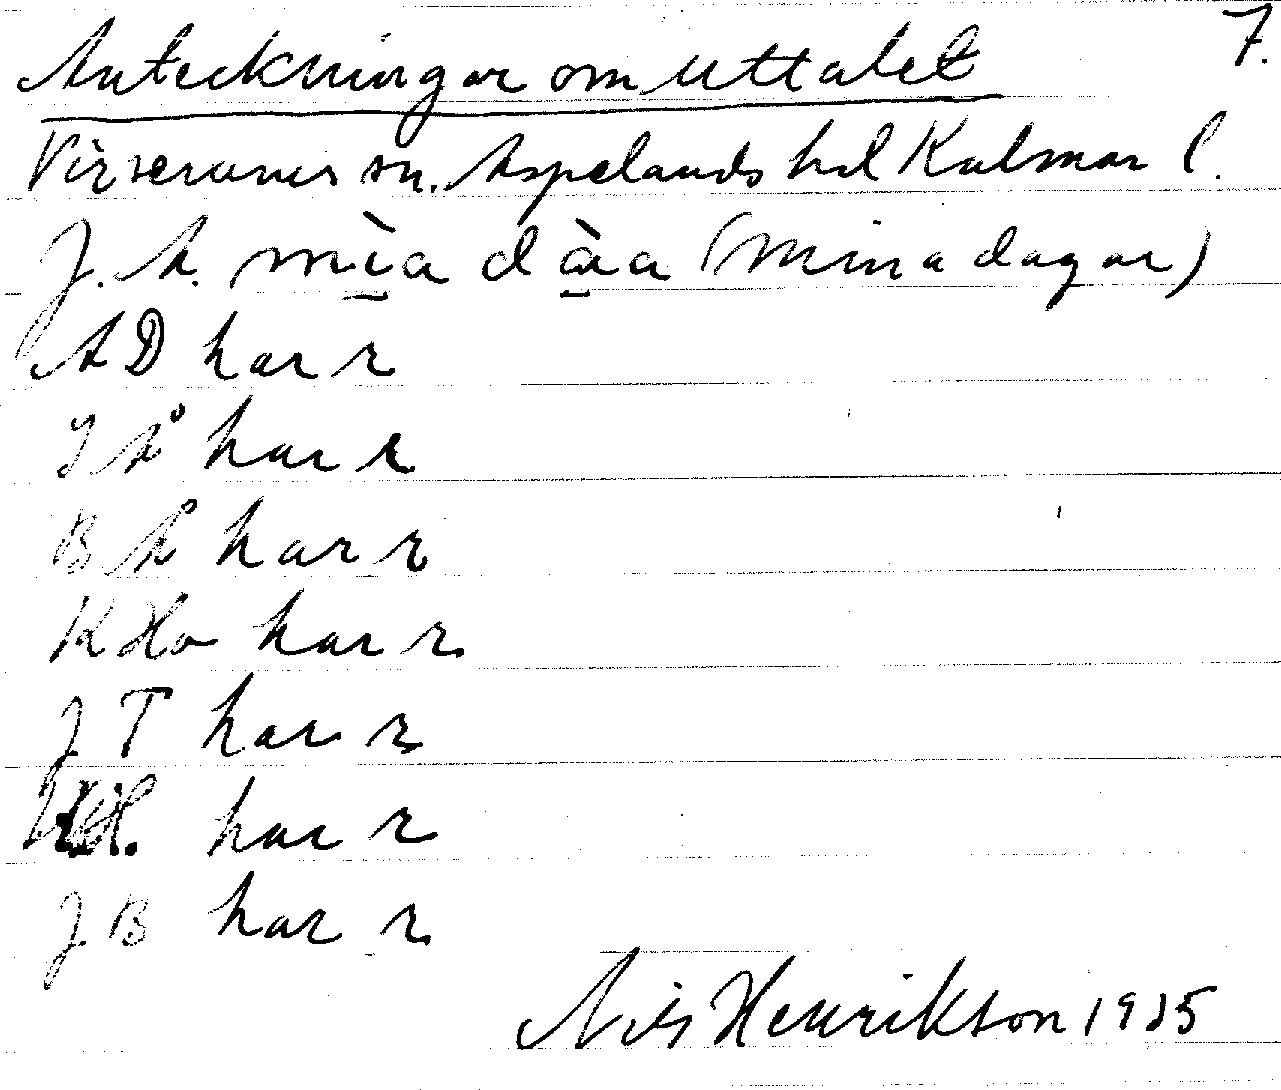 7.
Anteckningar om uttalet
Virserums sn. Aspelands hd Kalmar l.
J. A. mìa dàa (mina dagar)
AD har r
J Å har r
B Å har r
K Ho har r.
J T har r
har r
J B har r
Nils Henrikson 1935